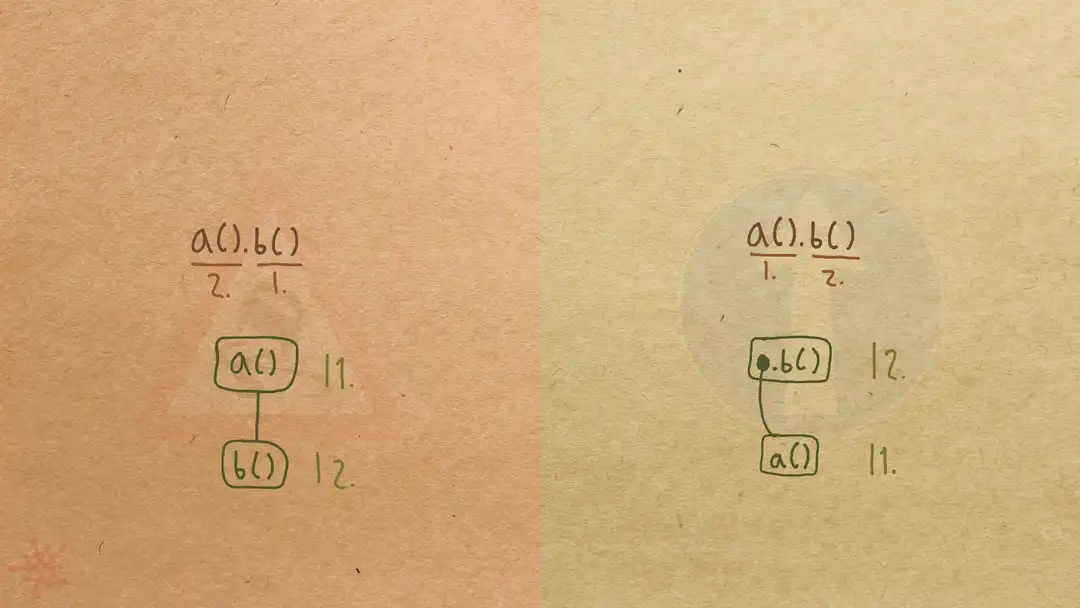 a().b()
2. 1.
a() |1.
b() |2.
a().b()
1. 2.
.b() |2.
a() |1.